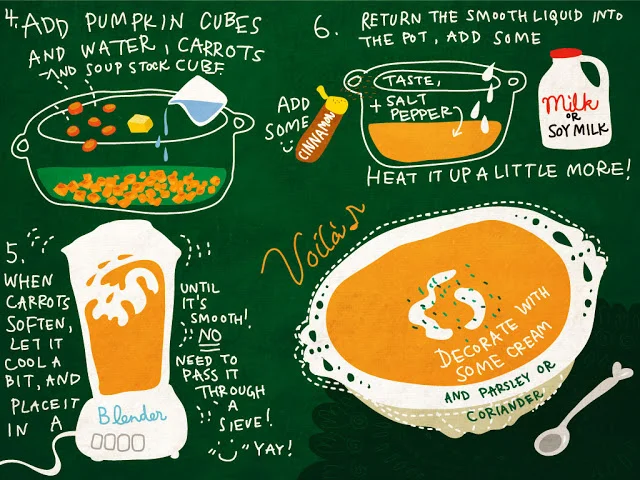 4. ADD PUMPKIN CUBES
AND WATER, CARROTS
AND SOUP STOCK CUBE
5.
WHEN
CARROTS
SOFTEN,
LET IT
COOL A
BIT, AND
PLACE IT
IN A
Blender
UNTIL
IT'S
SMOOTH!
NO
NEED TO
PASS IT
THROUGH
A
SIEVE!
YAY!
6. RETURN THE SMOOTH LIQUID INTO
THE POT, ADD SOME
Milk
OR
SOY MILK
TASTE,
+ SALT
PEPPER
ADD
SOME
CINNAMON
HEAT IT UP A LITTLE MORE!
Voilà
DECORATE WITH
SOME CREAM
AND PARSLEY OR
CORIANDER